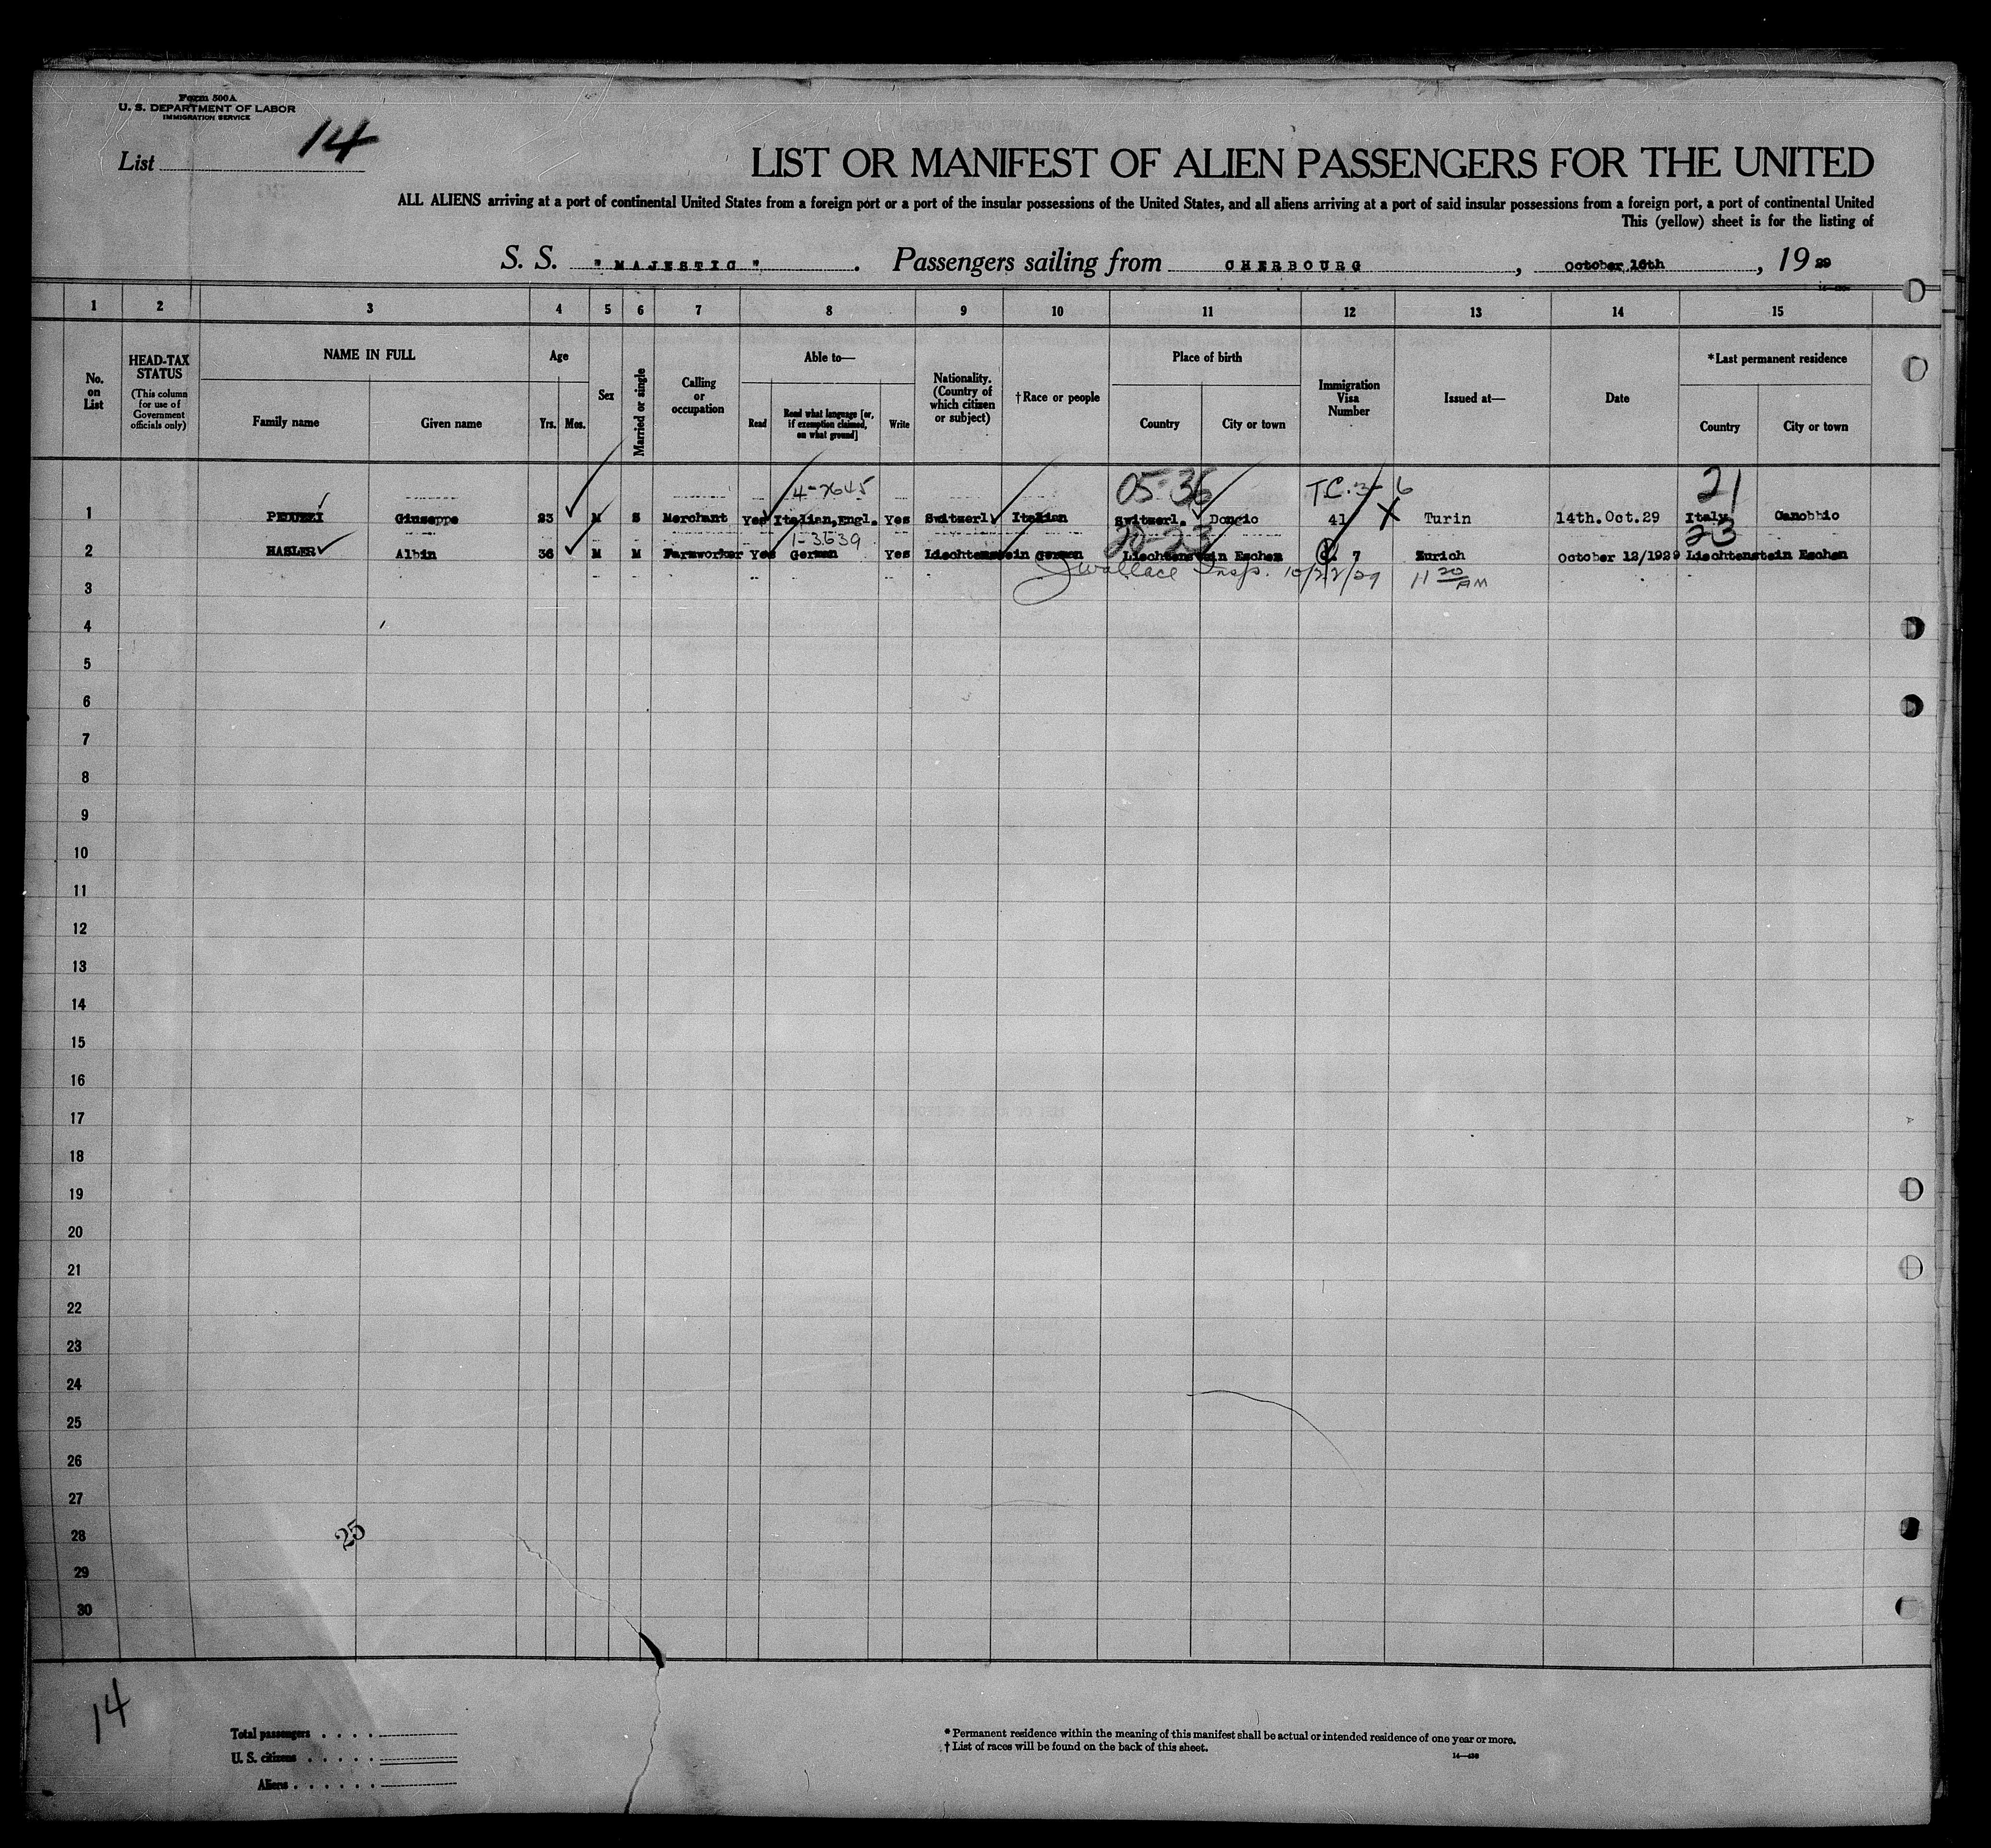 Form 500A
U. S. DEPARTMENT OF LABOR
IMMIGRATION SERVICE
List 14
LIST OR MANIFEST OF ALIEN PASSENGERS FOR THE UNITED
ALL ALIENS arriving at a port of continental United States from a foreign port or a port of the insular possessions of the United States, and all aliens arriving at a port of said insular possessions from a foreign port, a port of continental United
This (yellow) sheet is for the listing of
S. S. "MAJESTIC". Passengers sailing from CHERBOURG, October 16th, 1929
1 2 3 4 5 6 7 8 9 10 11 12 13 14 15
No. on List
HEAD-TAX STATUS
(This column for use of Government officials only)
NAME IN FULL
Family name
Given name
Age
Yrs.
Mos.
Sex
Married or single
Calling or occupation
Able to—
Read
Read what language [or, if exemption claimed, on what ground]
Write
Nationality. (Country of which citizen or subject)
†Race or people
Place of birth
Country
City or town
Immigration Visa Number
Issued at—
Date
*Last permanent residence
Country
City or town
4-7645 05-36 T.C. 3-6 21
1 Giuseppe 23 M S Merchant Yes Italian,Engl. Yes Switzerl. Italian Switzerl. Dongio 41 X Turin 14th.Oct.29 Italy Canobbio
1-3639 20-23 23
2 HASLER Albin 36 M M Farmworker Yes German Yes Liechtenstein German Liechtenstein Eschen 7 Zurich October 12/1929 Liechtenstein Eschen
3 Wallace Insp. 10/22/29 11 20 AM
4
5
6
7
8
9
10
11
12
13
14
15
16
17
18
19
20
21
22
23
24
25
26
27
28 25
29
30
14
Total passengers
U. S. citizens
Aliens
* Permanent residence within the meaning of this manifest shall be actual or intended residence of one year or more.
† List of races will be found on the back of this sheet.